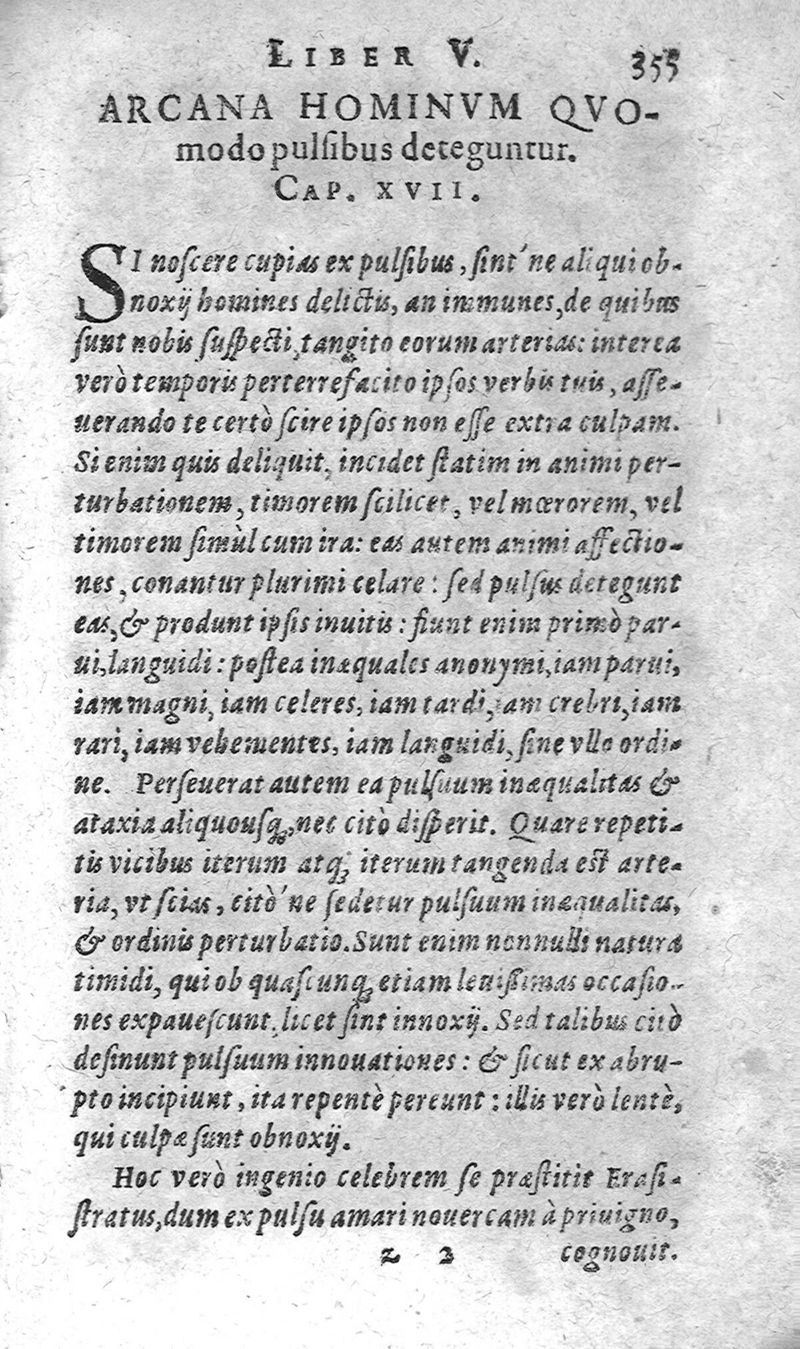 LIBER V. 355
ARCANA HOMINVM QVO-
modo pulſibus deteguntur.
CAP. XVII.
SI noſcere cupias ex pulſibus, ſint'ne aliqui ob-
noxij homines delictis, an immunes, de quibus
ſunt nobis ſuſpecti, tangito eorum arterias: interea
verò temporis perterrefacito ipſos verbis tuis, aſſe-
uerando te certò ſcire ipſos non eſſe extra culpam.
Si enim quis deliquit, incidet ſtatim in animi per-
turbationem, timorem ſcilicet, vel mœrorem, vel
timorem ſimùl cum ira: eas autem animi affectio-
nes, conantur plurimi celare: ſed pulſus detegunt
eas, & produnt ipſis inuitis: fiunt enim primò par-
ui, languidi: poſtea inæquales anonymi, iam parui,
iam magni, iam celeres, iam tardi, iam crebri, iam
rari, iam vehementes, iam languidi, ſine vllo ordi-
ne. Perſeuerat autem ea pulſuum inæqualitas &
ataxia aliquouſq;, nec citò diſperit. Quare repeti-
tis vicibus iterum atq; iterum tangenda eſt arte-
ria, vt ſcias, citò'ne ſedetur pulſuum inæqualitas,
& ordinis perturbatio. Sunt enim nonnulli natura
timidi, qui ob quaſcunq; etiam leuiſſimas occaſio-
nes expaueſcunt, licet ſint innoxij. Sed talibus citò
deſinunt pulſuum innouationes: & ſicut ex abru-
pto incipiunt, ita repentè pereunt: illis verò lentè,
qui culpæ ſunt obnoxij.
Hoc verò ingenio celebrem ſe præſtitit Eraſi-
ſtratus, dum ex pulſu amari nouercam à priuigno,
Z 2 cognouit.